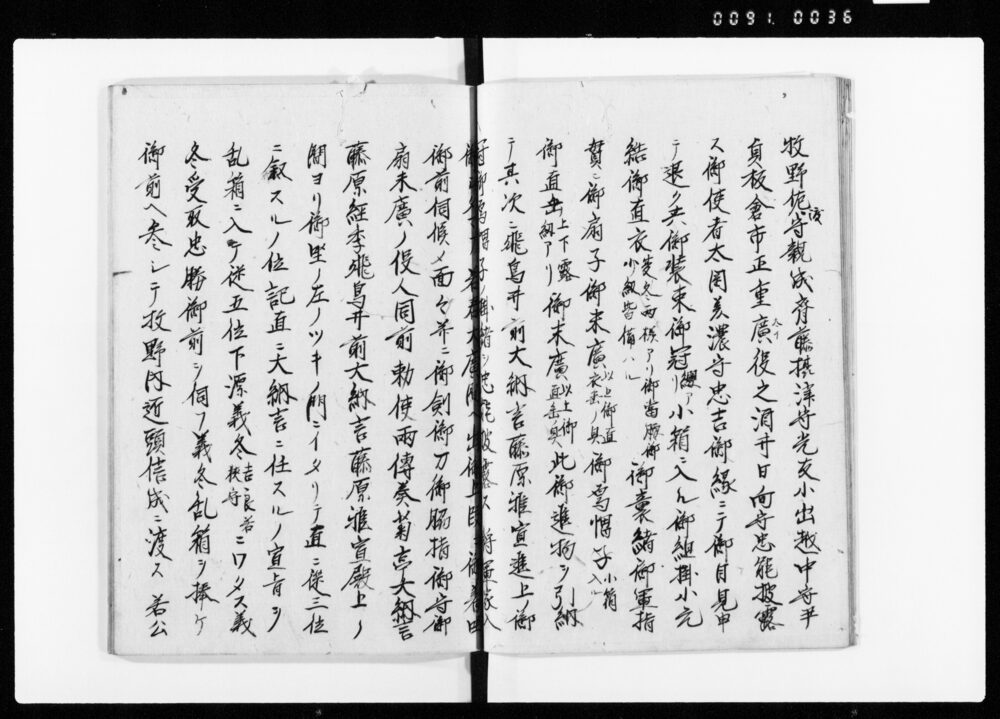 0091.0036
牧野佐渡守親成齊藤摂津守光友小出越中守尹
貞板倉市正重廣役之酒井日向守忠能披露
ス御使者太田美濃守忠吉御縁ニテ御目見申
テ退ク共御装束御冠纓アリ小箱ニ入ル御組掛小元
結御直衣夏冬両様アリ御当腰御小紐皆備ハル御裏緒御單指
貫ニ御扇子御末廣以上御直衣垂ノ具御烏帽子小箱入ル
御直垂上下露紐アリ御末廣以上御直垂具此御進物ヲ引納
テ其次ニ飛鳥井前大納言藤原雅宣進上ノ御
御前伺候メ面々并ニ御剣御刀御脇指御守御
扇末廣ノ役人同前勅使両傳奏菊亭大納言
藤原経季飛鳥井前大納言藤原雅宣殿上ノ
間ヨリ御座ノ左ノツキノ間ニイタリテ直ニ従三位
ニ叙スルノ位記直ニ大納言ニ任スルノ宣旨ヲ
乱箱ニ入テ従五位下源義冬吉良若狭守ニワタス義
冬受取忠勝御前ヲ伺フ義冬乱箱ヲ捧ケ
御前ヘ参シテ牧野内近頭信成ニ渡ス若公